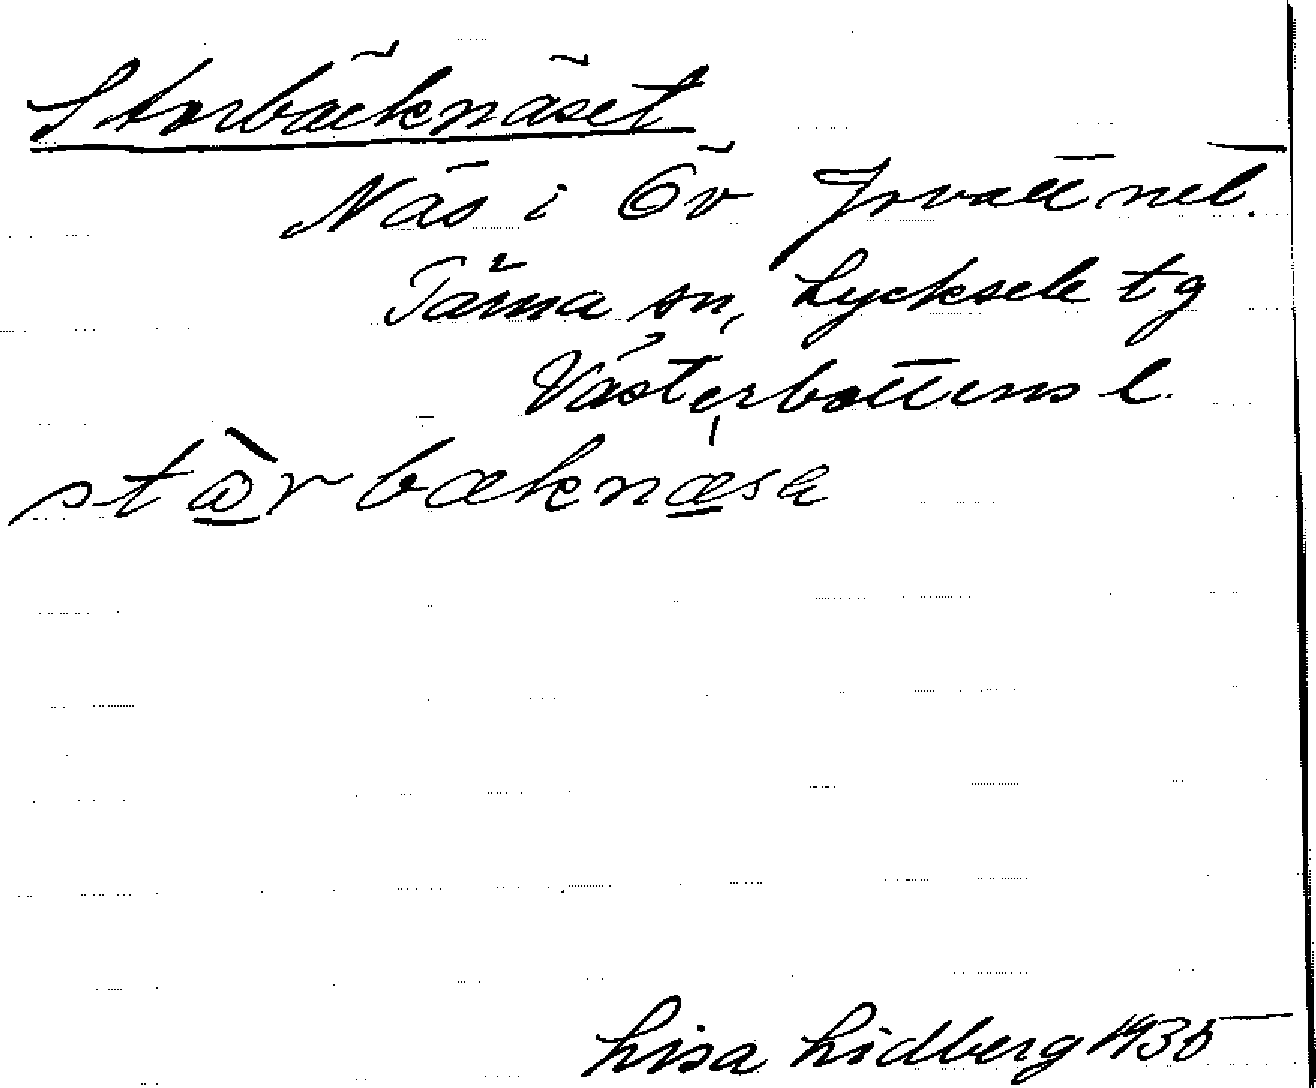 Storbäcknäset
Näs i Öv Jovattnet.
Tärna sn, Lycksele tg
Västerbottens l.
stὰrbæknæsɐ
Lisa Lidberg 1935